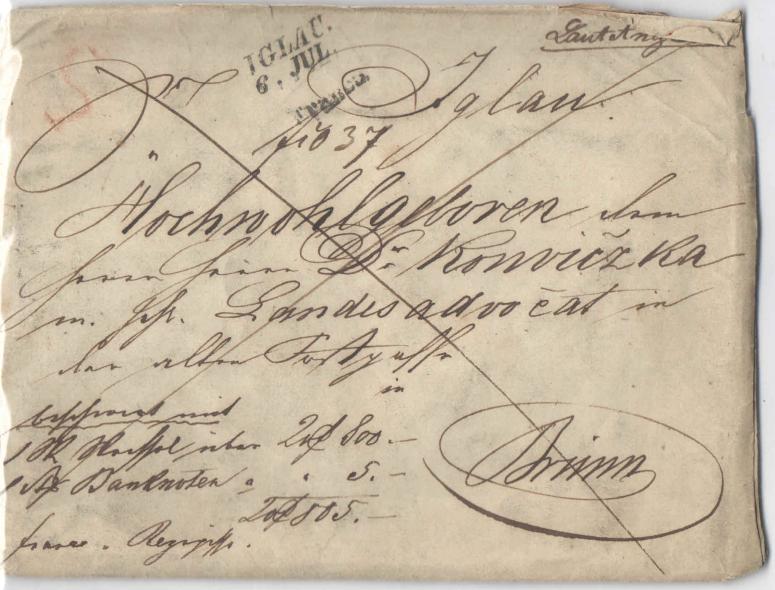 IGLAU.
6. JUL.
FRANCO.
Iglau.
Höchwohlgeboren dem
Herrn Herrn Dr Konviczka
m. sch. Landesadvočat in
der alten Postgasse
in
Brünn
beschwert mit
1 St Wechsel über 800.-
Banknoten " " 5.-
805.-
franco